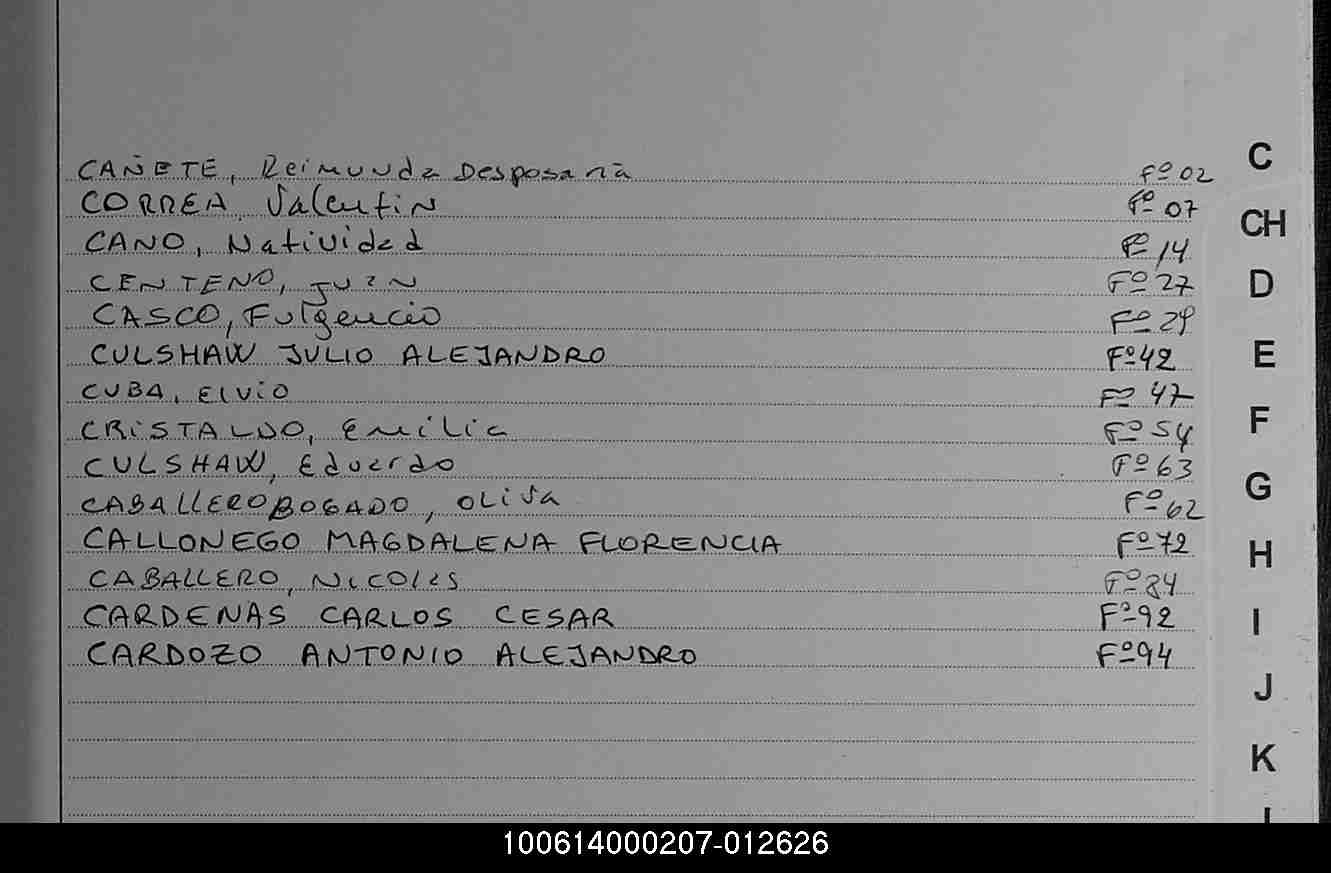 CAÑETE, Reimunda Desposaria Fº 02
CORREA, Valentin Fº 07
CANO, Natividad Fº 14
CENTENO, Juan Fº 27
CASCO, Fulgencio Fº 29
CULSHAW JULIO ALEJANDRO Fº 42
CUBA, Elvio Fº 47
CRISTALDO, Emilia Fº 54
CULSHAW, Eduardo Fº 63
CABALLERO BOGADO, OLIVA Fº 62
CALLONEGO MAGDALENA FLORENCIA Fº 72
CABALLERO, Nicolas Fº 84
CARDENAS CARLOS CESAR Fº 92
CARDOZO ANTONIO ALEJANDRO Fº 94
C
CH
D
E
F
G
H
I
J
K
100614000207-012626